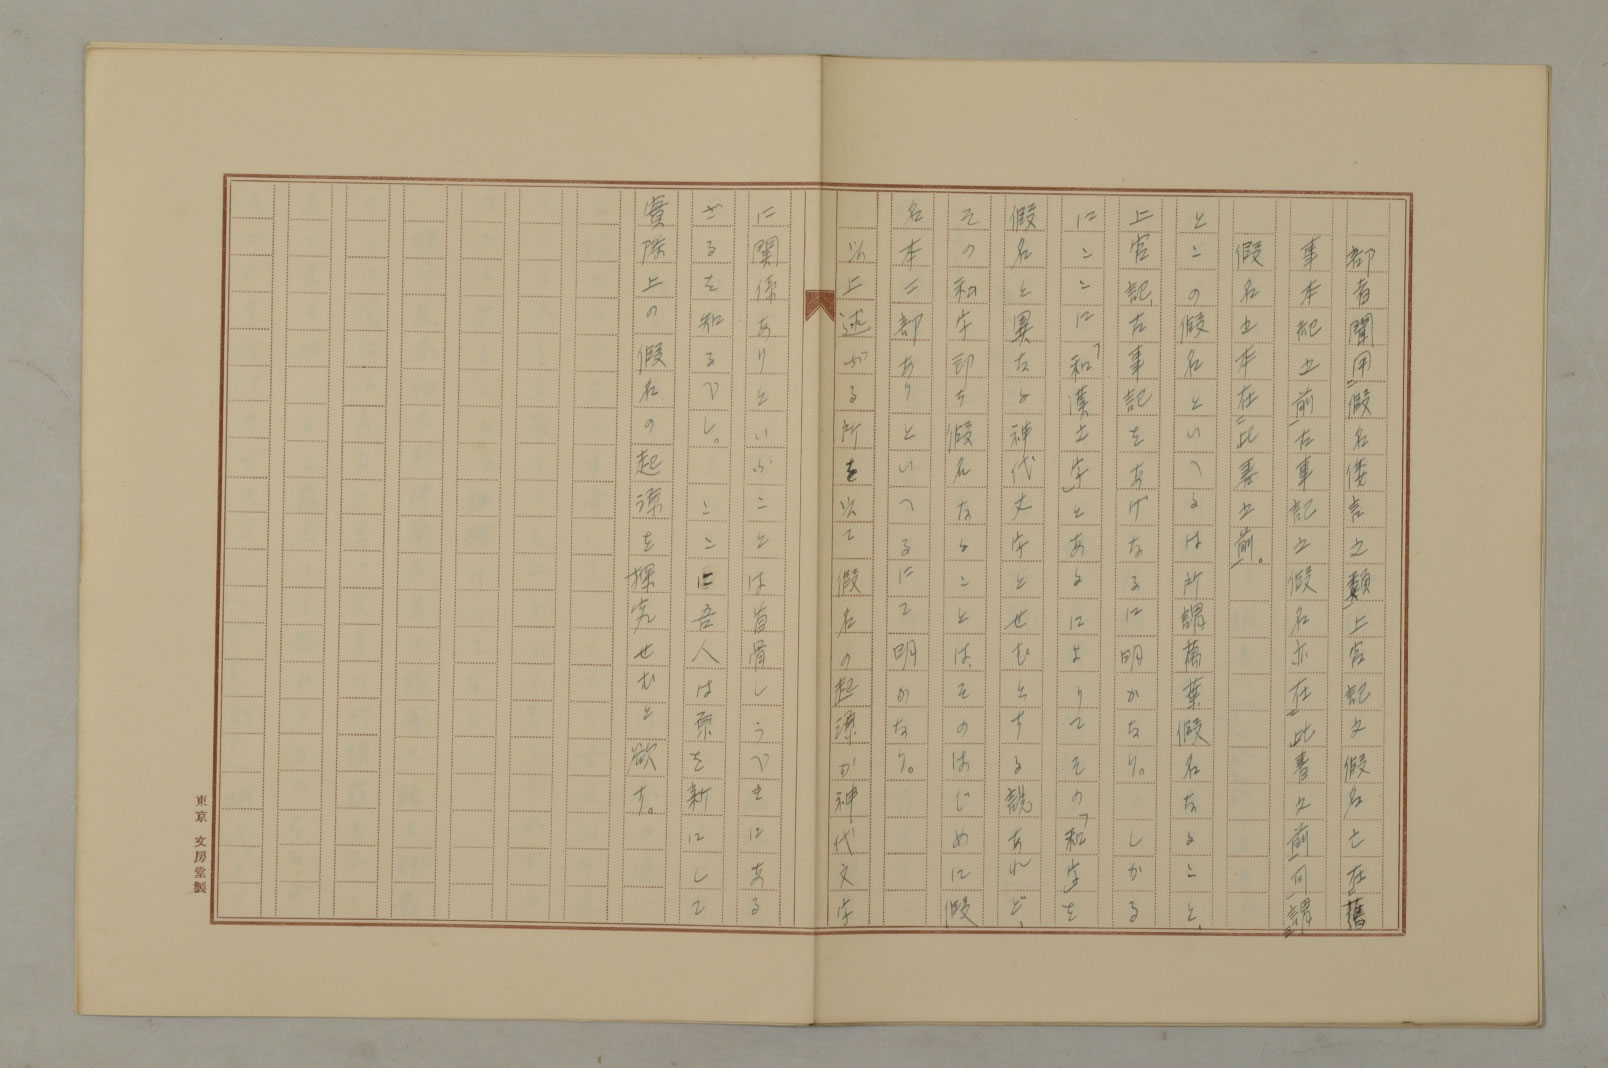 都者聞用假名倭言之類上宮記之假名亡在舊
事本紀之前古事記之假名亦在此書之前何謂
假名之本在此書之前。
とこの假名といへるは所謂萬葉假名なること、
上宮記、古事記をあげたるに明かなり。しかる
にここに「和漢之字」とあるによりてその「和字」を
假名と異なる神代文字とせむとする説あれど、
その和字即ち假名なることは、そのはじめに假
名本二部ありといへるにて明かなり。
以上述ぶる所を以て假名の起源が神代文字
に關係ありといふことは首肯しうべきにあら
ざるを知るべし。ここに吾人は案を新にして
實際上の假名の起源を探究せむと欲す。
東京 文房堂製